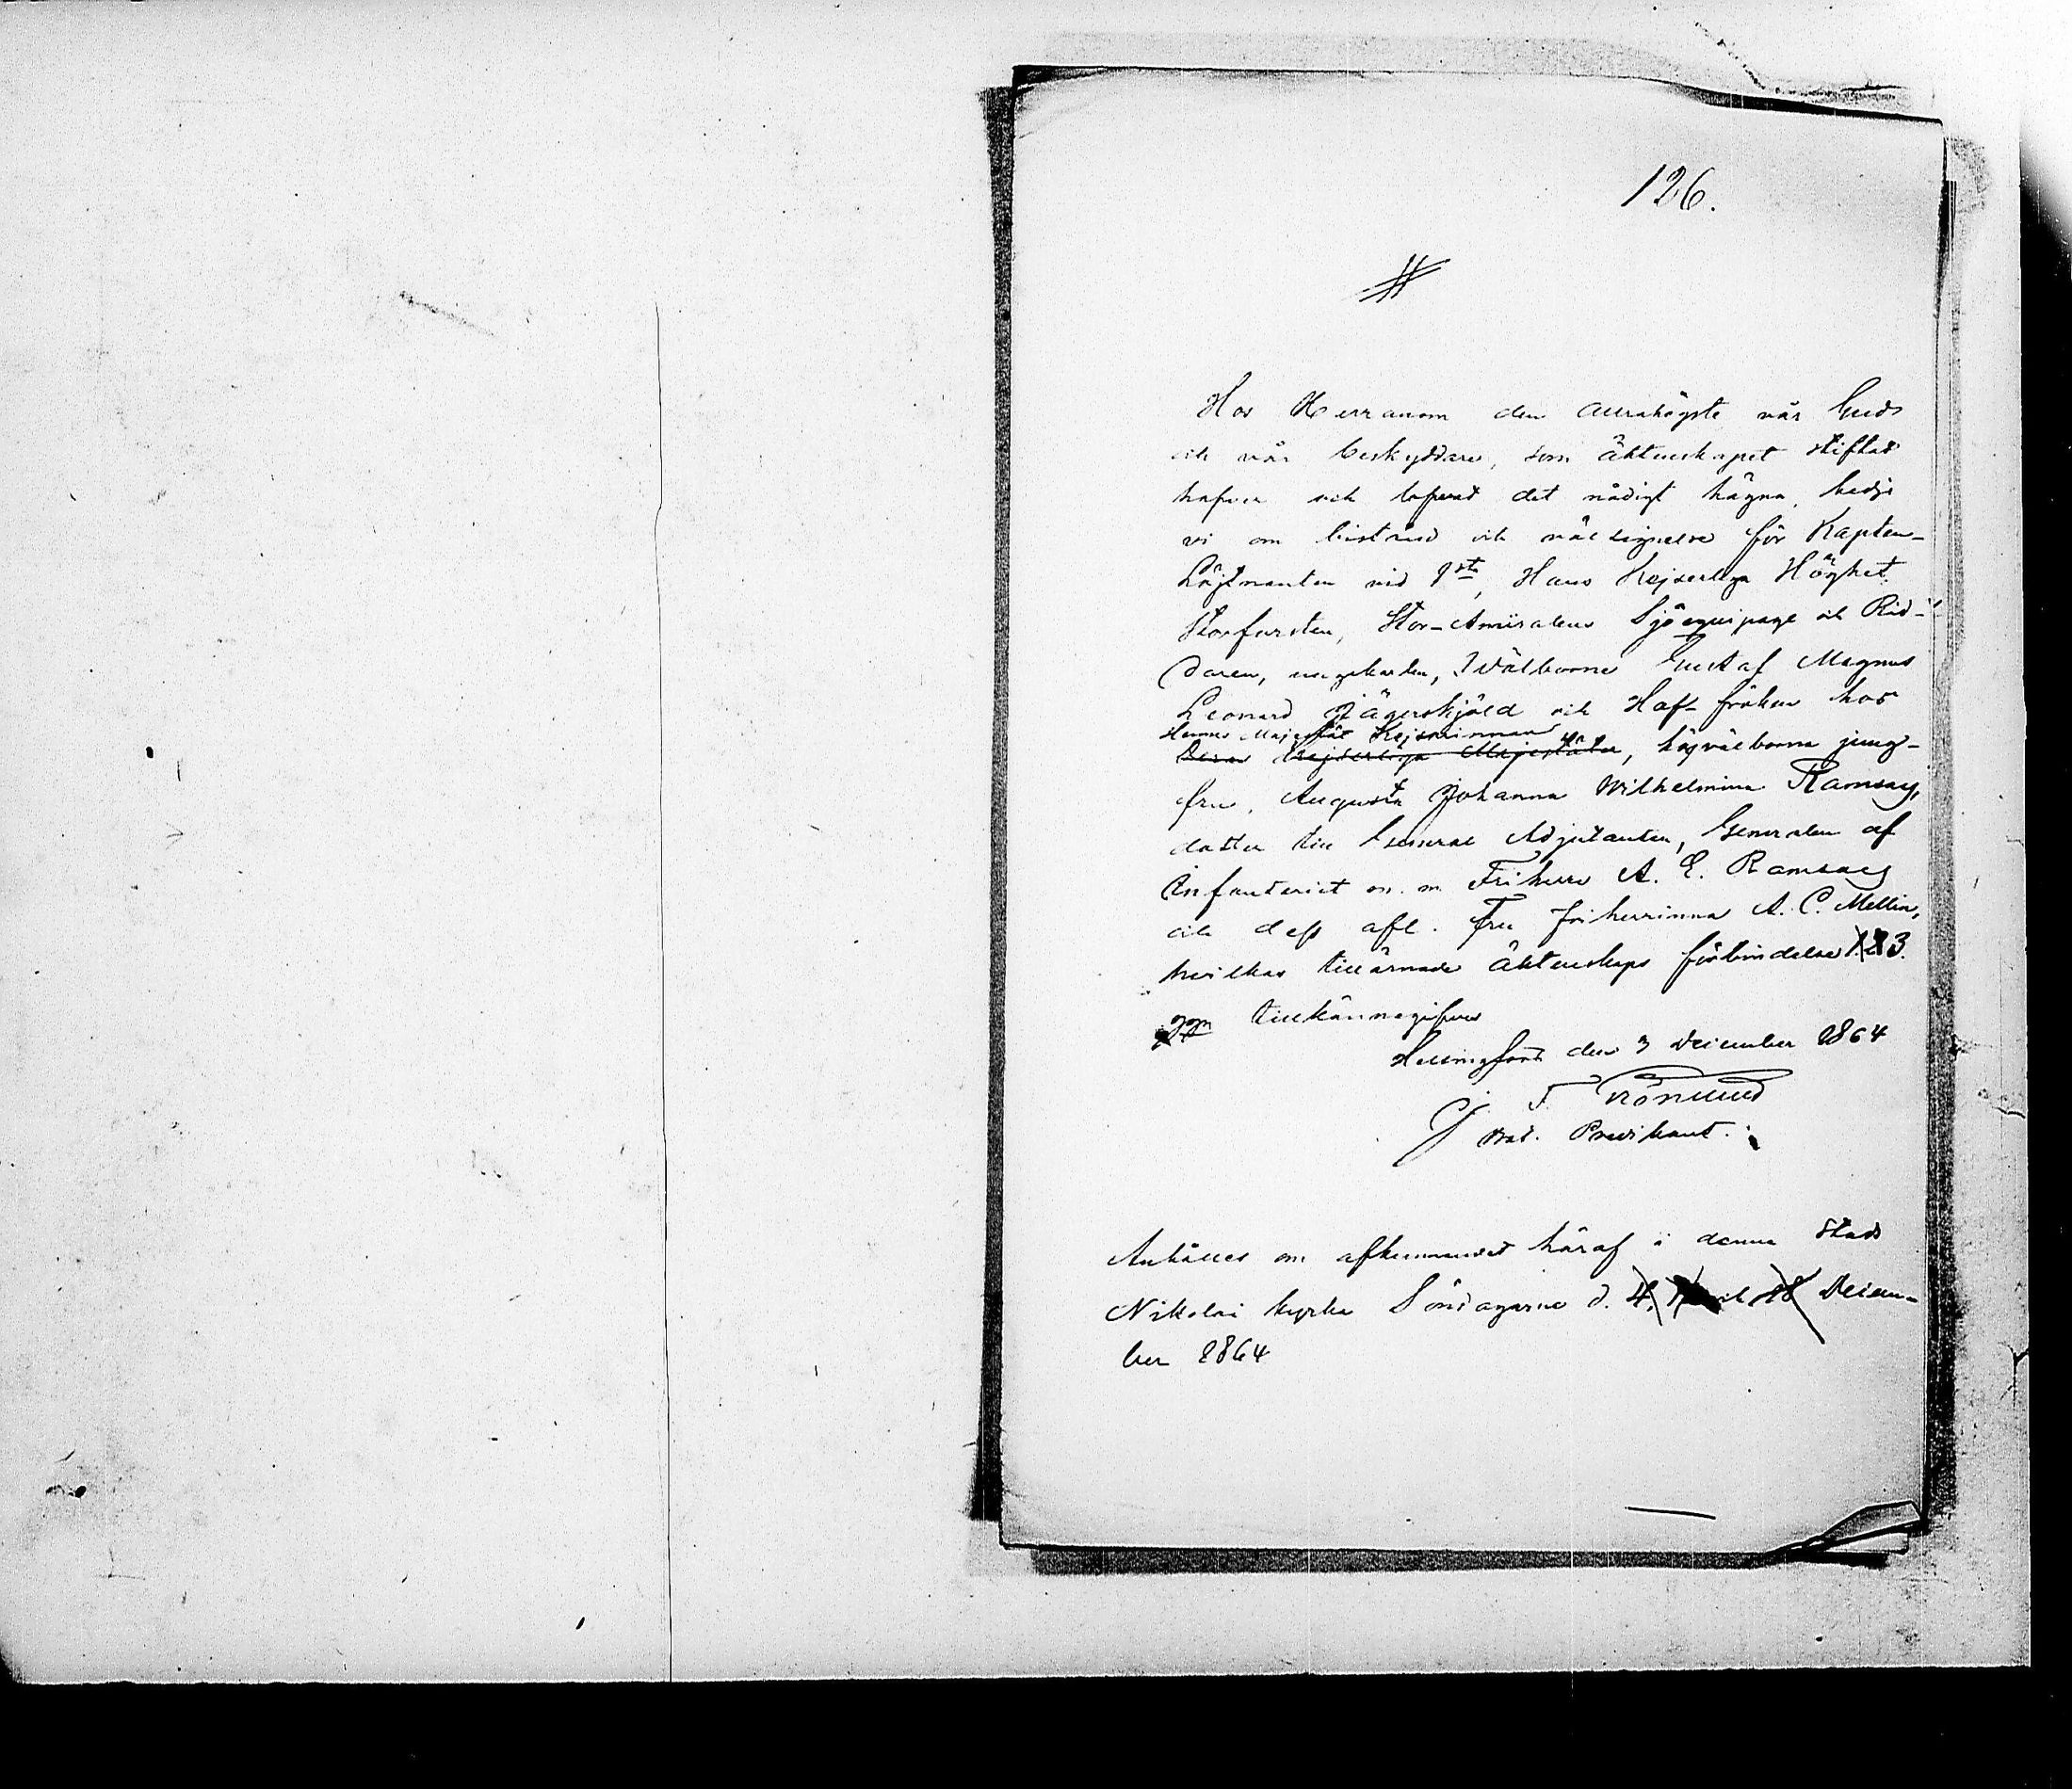 126.
Hos Herranom den allrahögste vår Gud
och vår beskyddare, som äktenskapet stiftat
hafver och lofvat det nådigt hägna, bedje
vi om bistånd och välsignelse för Kapten-
Löjtnanten vid 1sta, Hans Kejserliga Höghet
Storfursten, Stor-Amiralens Sjöequipage och Rid-
daren, Wälborne Gustaf Magnus
Leonard Jägerskjöld och Hof-fröken hos
Hennes Majestät Kejsarinnan
Deras Kejserliga Majestäter, högvälborna jung-
fru, Augusta Johanna Wilhelmina Ramsay,
dotter till General Adjutanten, Generalen af
Infanteriet m. m. Friherre A. E. Ramsay
och dess afl. Fru friherrinna A. C. Mellin,
hvilkas tillärnade äktenskaps förbindelse 1. 2 3.
ggn tillkännagifves
Helsingfors den 3 December 1864
F.
Predikant.
Anhålles om afkunnandet häraf i denna Stads
Nikolai kyrka Söndagarne d. 4, och 18 Decem-
ber 1864